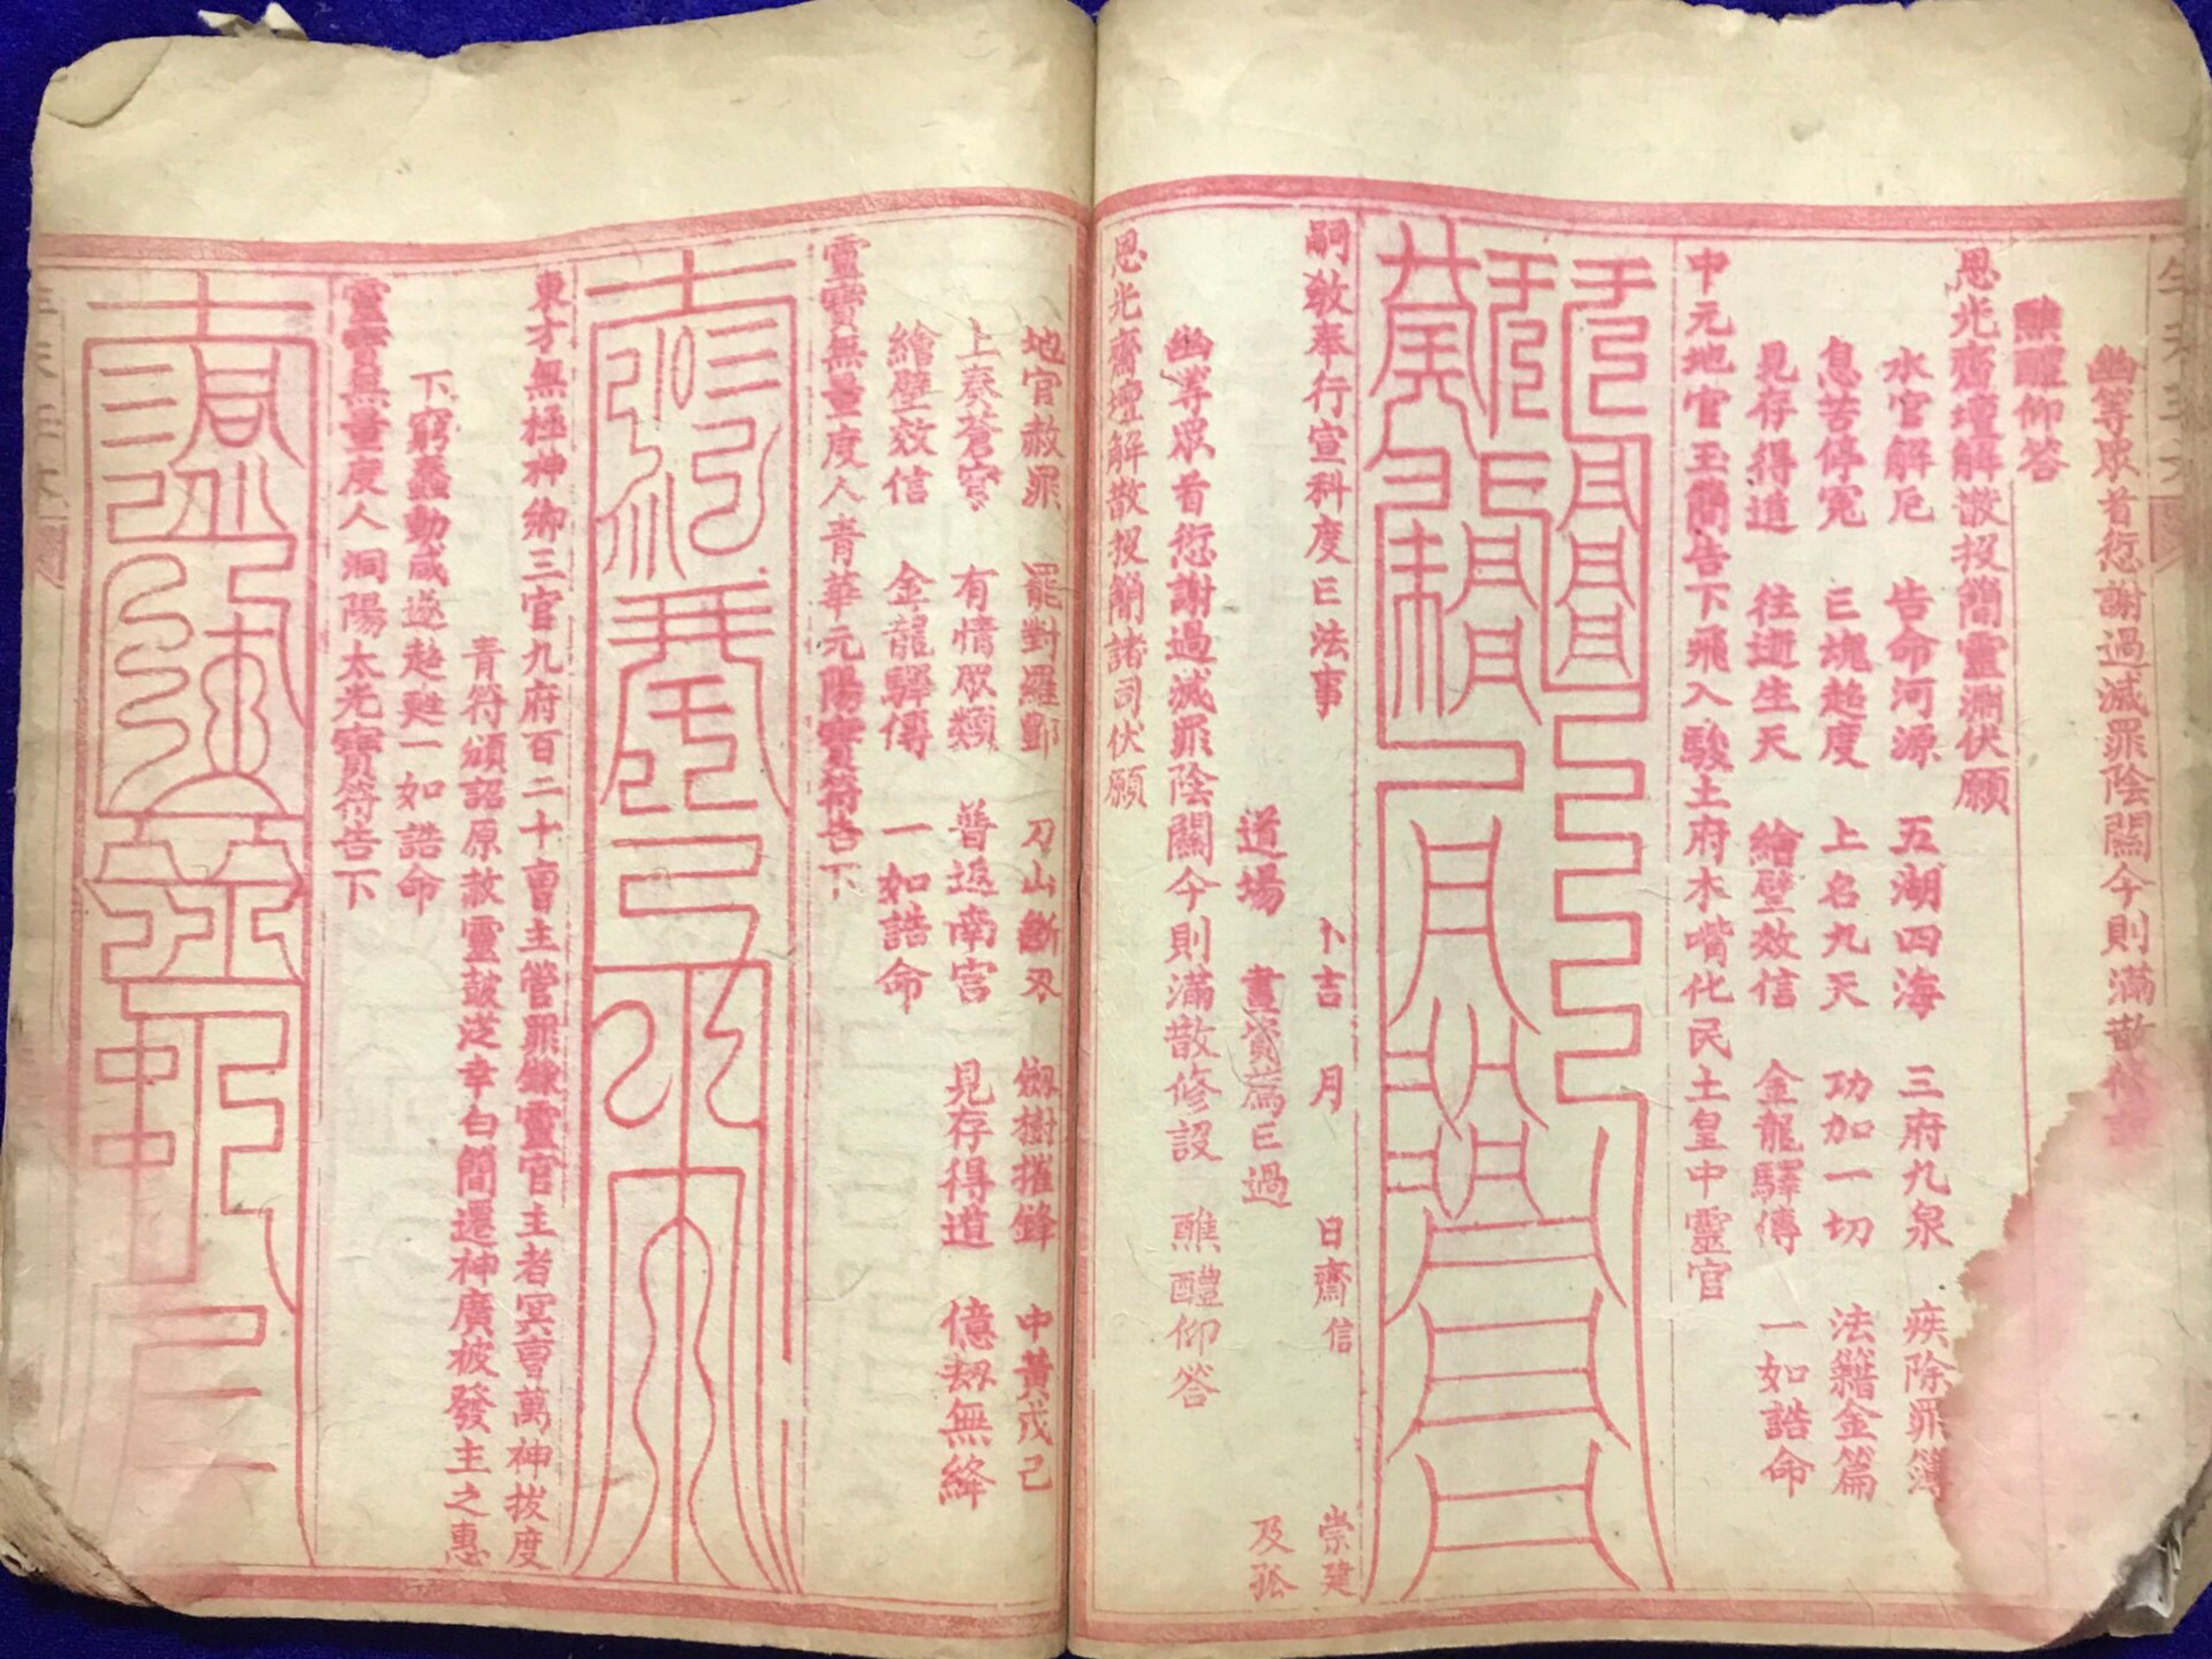 幽等眾看愆謝過滅罪陰關今則滿散修設
醮醴仰答
恩光齋壇解散投簡靈淵伏願
水官解厄 告命河源 五湖四海 三府九泉 疾除罪簿
息苦停冤 三塊超度 上名九天 功加一切 法籍金篇
見存得道 往逝生天 繪璧效信 金龍驛傳 一如誥命
中元地官玉簡告下飛入駿土府木嘴化民土皇中靈官
嗣教奉行宣科度亡法事 卜吉 月 日齋信 崇建
道場 畫賓薦亡過 及孤
幽等眾看愆謝過滅罪陰關今則滿散修設 醮醴仰答
恩光齋壇解散投簡諸司伏願
地官赦罪 罷對羅酆 刀山斷刃 劔樹摧鋒 中黃戊己
上奏蒼穹 有情眾類 普返南宮 見存得道 億劫無絳
繪璧效信 金龍驛傳 一如誥命
靈寶無量度人青華元陽寶符告下
東方無極神鄉三官九府百二十曹主管罪錄靈官主者冥曹萬神拔度
青符頒詔原赦靈鼓茫幸白簡還神廣被發主之惠
下窮蠢動咸遂超甦一如誥命
靈寶無量度人洞陽太光寶符告下